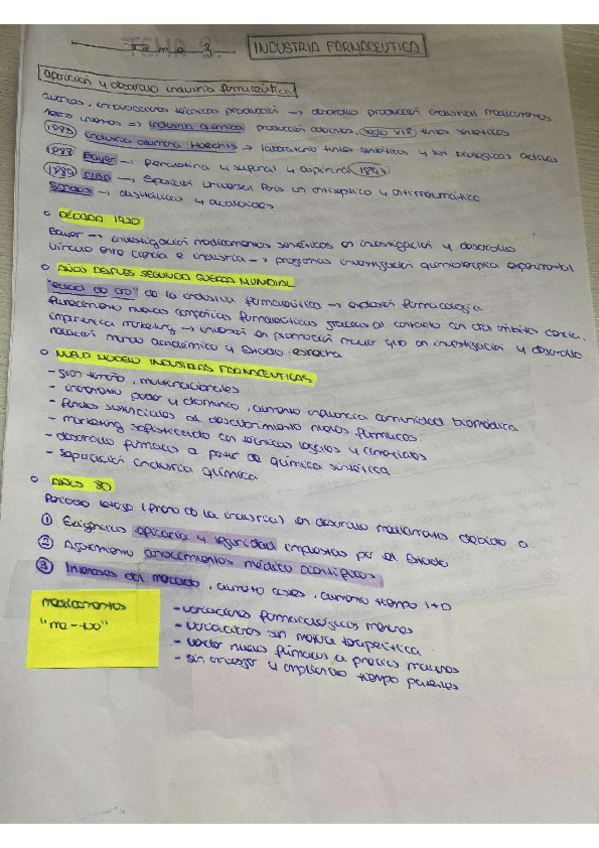 Tema 3. INDUSTRIA FARMACÉUTICA
Aparición y desarrollo industria farmacéutica
innovaciones técnicas producción → desarrollo producción industrial medicamentos
→ industria química producción siglo XIX tintes sintéticos
industria alemana Hoechst → laboratorio tintes sintéticos y sin biológicos
Bayer → Fenacetina y sulfonal y aspirina
CIBA → Exposición Universal París un antiséptico y antirreumático
Sandoz → digitálicos y alcaloides
DÉCADA 1920
Bayer → investigación medicamentos sintéticos en investigación y desarrollo
Vínculo entre ciencia e industria → programas investigación quimioterapia experimental
AÑOS DESPUÉS SEGUNDA GUERRA MUNDIAL
"edad de oro" de la industria farmacéutica → explosión farmacología
Florecimiento nuevas compañías farmacéuticas gracias al contacto con otros
importancia marketing → inversión en promoción mayor que en investigación y desarrollo
relación mundo académico y Estado estrecha
NUEVO MODELO INDUSTRIAS FARMACÉUTICAS
- gran tamaño, multinacionales
- incremento poder y dominio, aumento influencia comunidad biomédica
- fondos sustanciales al descubrimiento nuevos fármacos
- marketing sofisticado con técnicas legales y comerciales
- desarrollo fármacos a partir de química sintética
- separación industria química
AÑOS 80
Periodo de la industria) en desarrollo medicamentos debido a:
① Exigencias eficacia y seguridad impuestas por el Estado
② Agotamiento conocimientos médico científicos
③ Intereses del mercado, aumento costes, aumento tiempo I+D
medicamentos
"me-too"
- variaciones farmacológicas menores
- variaciones sin mejora terapéutica
- vender nuevos fármacos a precios mayores
- sin investigar y ampliando tiempo patentes